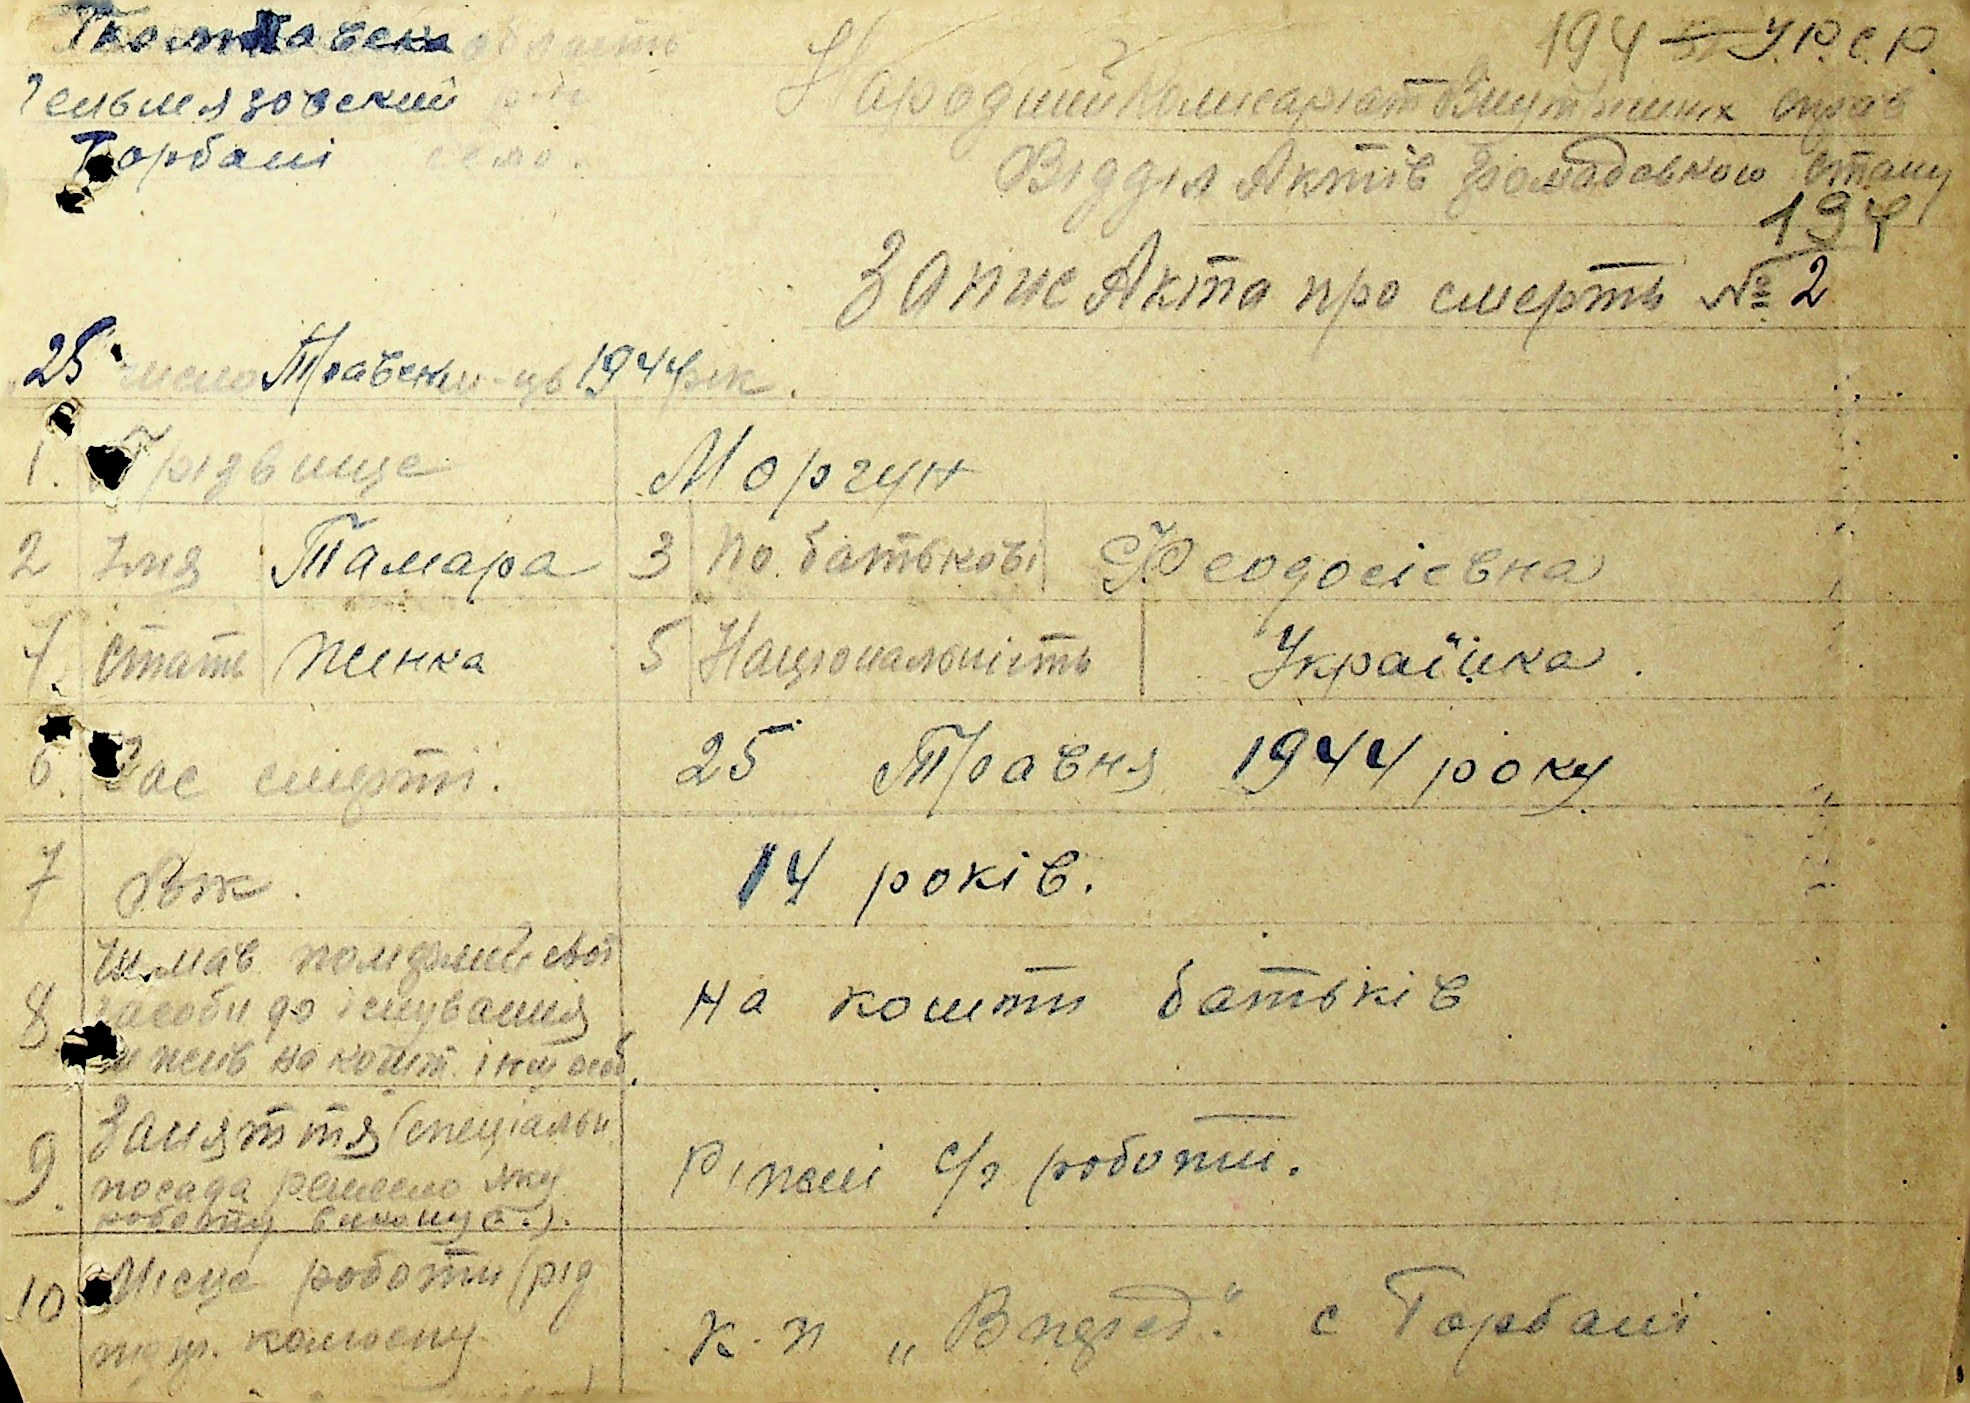 Полтавська область
194 У.Р.С.Р.
Гельмязовский р-н
Народний Комисаріат Внутрішніх справ
Горбані село.
Відділ Актів Громадського стану
194
Запис Акта про смерть № 2
25 число Травень м-ць 1944 рік.
1. Прізвище Моргун
2 Імя Тамара 3 По батькові Феодосієвна
4. Стать Жинка 5 Національність Українка.
6. Час смерті. 25 Травня 1944 року
7 Вік. 14 років.
8 Чи мав свої
засоби до існування на кошти батьків
жив на кошт. інш осіб.
9. Заняття (спеціальн
посада ремесло яку Ріжні с/г роботи.
роботу виконує).
10 Місце роботи (рід
с Горбані